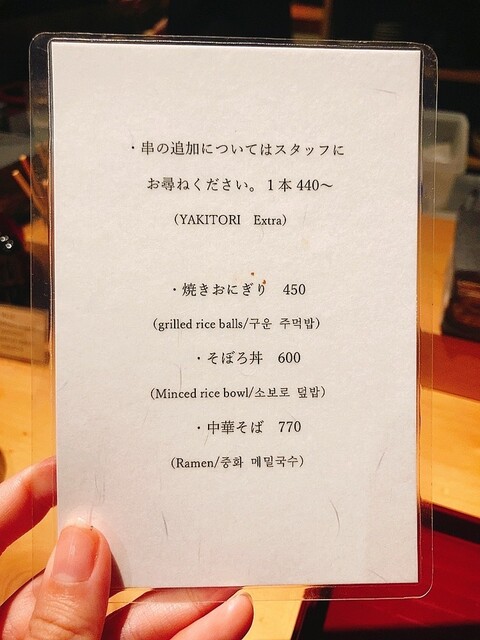 ・串の追加についてはスタッフに
お尋ねください。1本 440～
(YAKITORI Extra)
・焼きおにぎり 450
(grilled rice balls/구운 주먹밥)
・そぼろ丼 600
(Minced rice bowl/소보로 덮밥)
・中華そば 770
(Ramen/중화 메밀국수)